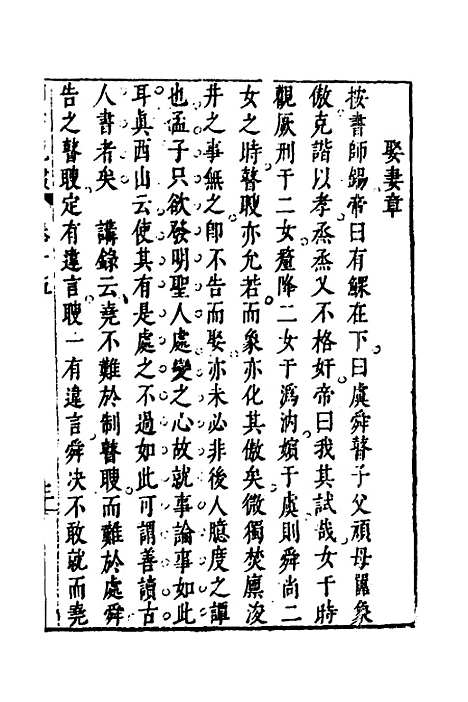 娶妻章
按書師錫帝曰有鰥在下曰虞舜瞽子父頑母嚚象
傲克諧以孝烝烝乂不格奸帝曰我其試哉女于時
觀厥刑于二女釐降二女于溈汭嬪于虞則舜尚二
女之時瞽瞍亦允若而象亦化其傲矣微獨焚廪浚
井之事無之卽不告而娶亦未必非後人臆度之譚
也孟子只欲發明聖人處變之心故就事論事如此
耳眞西山云使其有是處之不過如此可謂善讀古
人書者矣　講錄云堯不難於制瞽瞍而難於處舜
告之瞽瞍定有違言瞍一有違言舜决不敢就而堯